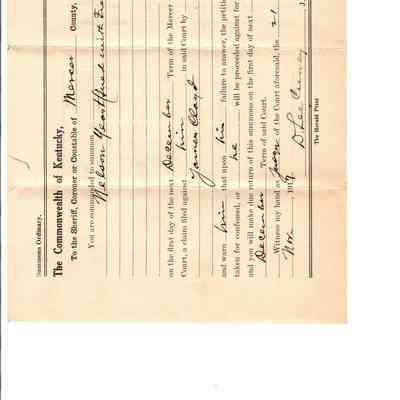 Summons Ordinary.
The Commonwealth of Kentucky,
To the Sheriff, Coroner or Constable of Mercer County,
You are commanded to summon
Nelson
on the first day of the next December Term of the Mercer
Court, a claim filed against him in said Court by
James Cloyd
and warn him that upon his failure to answer, the petiti
taken for confessed, or he will be proceeded against for
and you will make due return of this summons on the first day of next
December Term of said Court.
Witness my hand as Judge of the Court aforesaid, the 21
Nov. , 191
D Lee Curney J.
The Herald Print